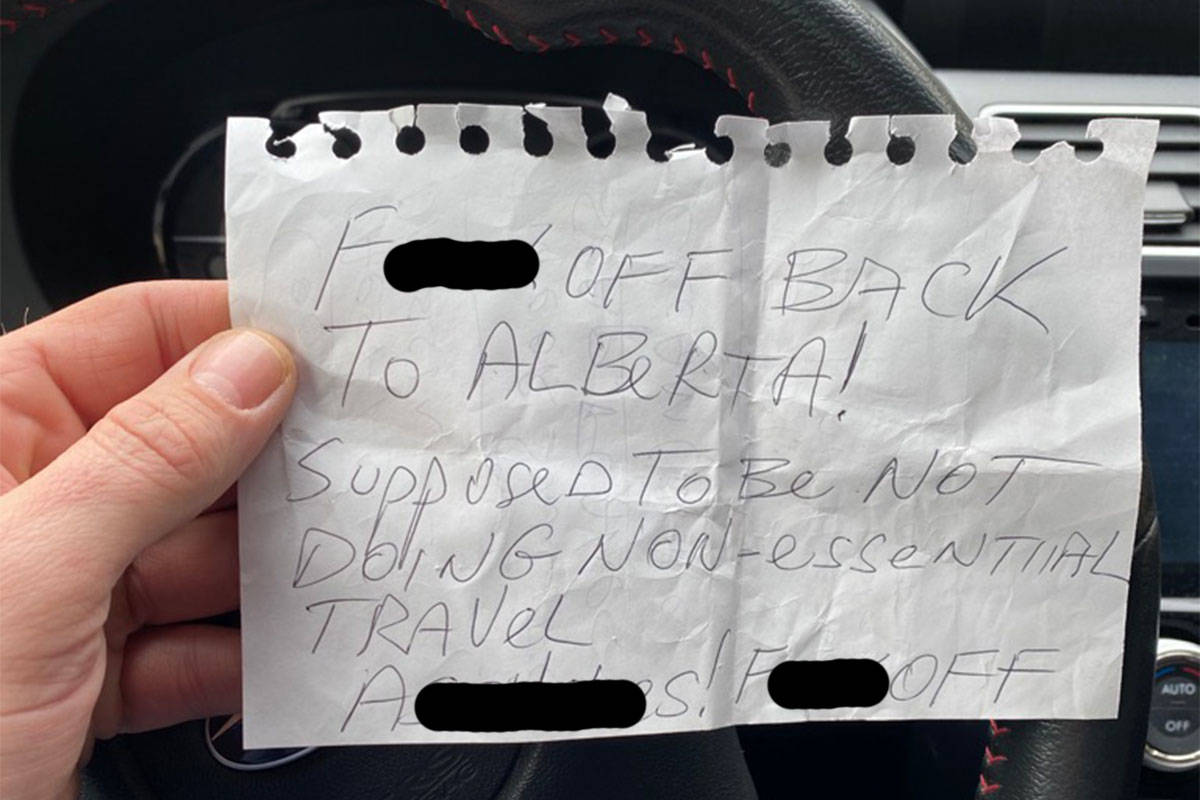 F OFF BACK
TO ALBeRTA!
SupposeD To Be NoT
DOING NON-esseNTIAL
TRAVeL
A es! F OFF
AUTO
OFF